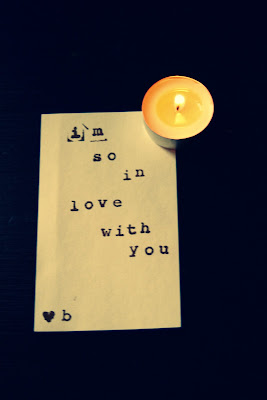 i'm
so
in
love
with
you
♥ b